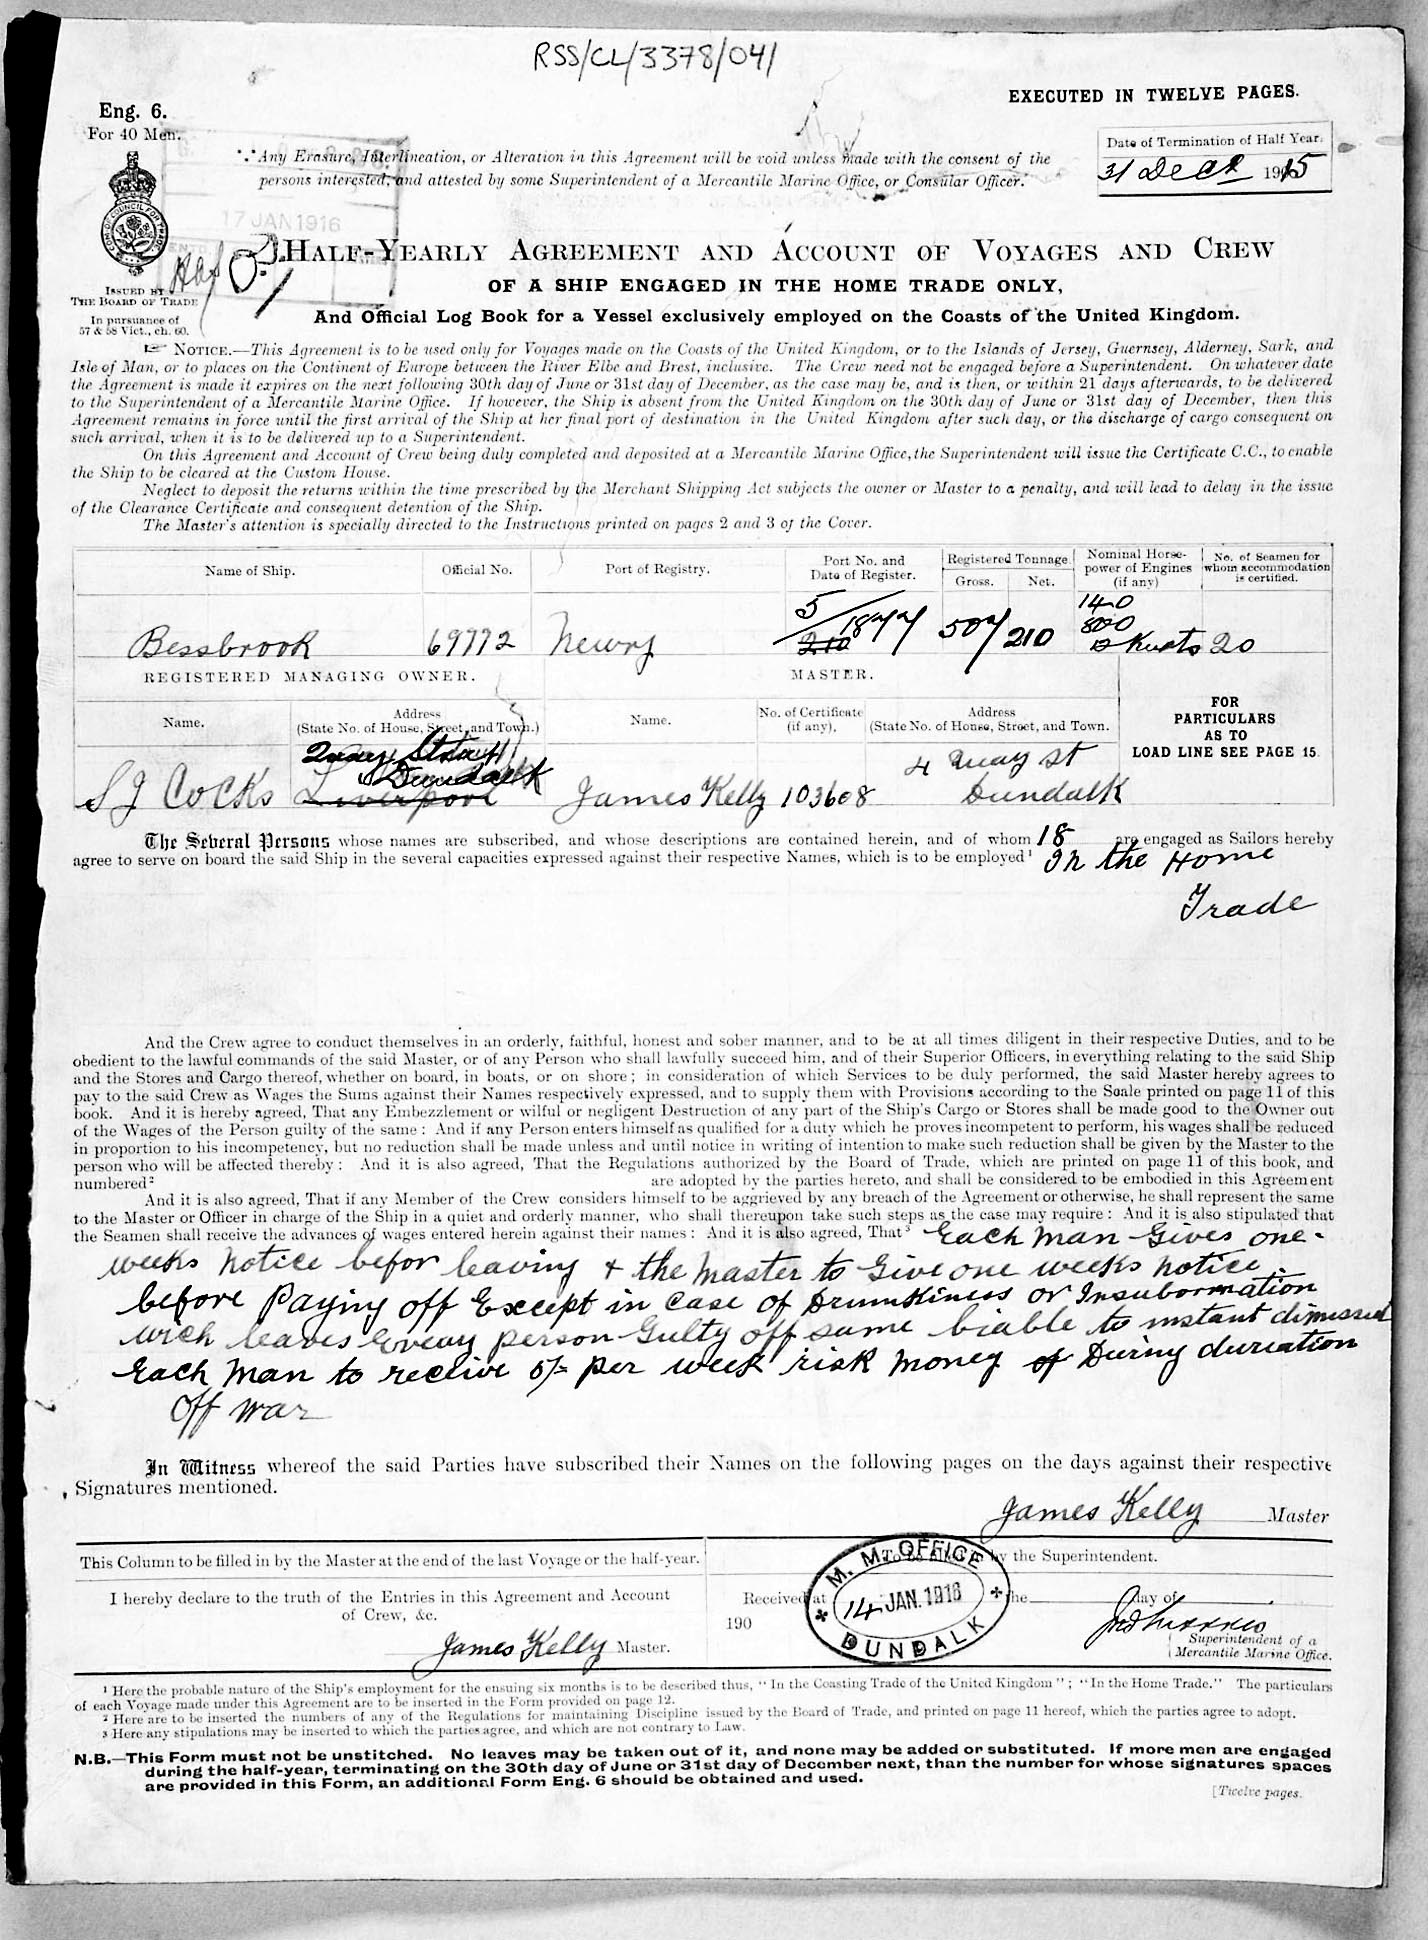 RSS/CL/3378/041
EXECUTED IN TWELVE PAGES.
Eng. 6.
For 40 Men.
Date of Termination of Half Year.
31 Decr 1915
Any Erasure, Interlineation, or Alteration in this Agreement will be void unless made with the consent of the
persons interested, and attested by some Superintendent of a Mercantile Marine Office, or Consular Officer.
17 JAN 1916
HALF-YEARLY AGREEMENT AND ACCOUNT OF VOYAGES AND CREW
OF A SHIP ENGAGED IN THE HOME TRADE ONLY,
ISSUED BY
THE BOARD OF TRADE
In pursuance of
57 & 58 Vict., ch. 60.
And Official Log Book for a Vessel exclusively employed on the Coasts of the United Kingdom.
☞ NOTICE.—This Agreement is to be used only for Voyages made on the Coasts of the United Kingdom, or to the Islands of Jersey, Guernsey, Alderney, Sark, and
Isle of Man, or to places on the Continent of Europe between the River Elbe and Brest, inclusive. The Crew need not be engaged before a Superintendent. On whatever date
the Agreement is made it expires on the next following 30th day of June or 31st day of December, as the case may be, and is then, or within 21 days afterwards, to be delivered
to the Superintendent of a Mercantile Marine Office. If however, the Ship is absent from the United Kingdom on the 30th day of June or 31st day of December, then this
Agreement remains in force until the first arrival of the Ship at her final port of destination in the United Kingdom after such day, or the discharge of cargo consequent on
such arrival, when it is to be delivered up to a Superintendent.
On this Agreement and Account of Crew being duly completed and deposited at a Mercantile Marine Office, the Superintendent will issue the Certificate C.C., to enable
the Ship to be cleared at the Custom House.
Neglect to deposit the returns within the time prescribed by the Merchant Shipping Act subjects the owner or Master to a penalty, and will lead to delay in the issue
of the Clearance Certificate and consequent detention of the Ship.
The Master's attention is specially directed to the Instructions printed on pages 2 and 3 of the Cover.
Name of Ship. Official No. Port of Registry. Port No. and Date of Register. Registered Tonnage. Gross. Net. Nominal Horse-power of Engines (if any) No. of Seamen for whom accommodation is certified.
Bessbrook 69772 Newry 5/1877 210 507 210 140 800 12 Knots 20
REGISTERED MANAGING OWNER. MASTER.
Name. Address (State No. of House, Street, and Town.) Name. No. of Certificate (if any). Address (State No. of House, Street, and Town.
FOR
PARTICULARS
AS TO
LOAD LINE SEE PAGE 15.
S J Cocks Quay Street Dundalk Liverpool James Kelly 103608 4 Quay St Dundalk
The Several Persons whose names are subscribed, and whose descriptions are contained herein, and of whom 18 are engaged as Sailors hereby
agree to serve on board the said Ship in the several capacities expressed against their respective Names, which is to be employed¹ In the Home
Trade
And the Crew agree to conduct themselves in an orderly, faithful, honest and sober manner, and to be at all times diligent in their respective Duties, and to be
obedient to the lawful commands of the said Master, or of any Person who shall lawfully succeed him, and of their Superior Officers, in everything relating to the said Ship
and the Stores and Cargo thereof, whether on board, in boats, or on shore; in consideration of which Services to be duly performed, the said Master hereby agrees to
pay to the said Crew as Wages the Sums against their Names respectively expressed, and to supply them with Provisions according to the Scale printed on page 11 of this
book. And it is hereby agreed, That any Embezzlement or wilful or negligent Destruction of any part of the Ship's Cargo or Stores shall be made good to the Owner out
of the Wages of the Person guilty of the same: And if any Person enters himself as qualified for a duty which he proves incompetent to perform, his wages shall be reduced
in proportion to his incompetency, but no reduction shall be made unless and until notice in writing of intention to make such reduction shall be given by the Master to the
person who will be affected thereby: And it is also agreed, That the Regulations authorized by the Board of Trade, which are printed on page 11 of this book, and
numbered² are adopted by the parties hereto, and shall be considered to be embodied in this Agreement
And it is also agreed, That if any Member of the Crew considers himself to be aggrieved by any breach of the Agreement or otherwise, he shall represent the same
to the Master or Officer in charge of the Ship in a quiet and orderly manner, who shall thereupon take such steps as the case may require: And it is also stipulated that
the Seamen shall receive the advances of wages entered herein against their names: And it is also agreed, That³ Each Man Gives one
weeks notice befor leaving & the Master to Give one weeks notice
before Paying off Except in Case of Drunkiness or Insubormation
wich leaves Eveary person Gulty off same liable to instant dimissed
Each Man to receive 5/- per week risk money of During duriation
off war
In Witness whereof the said Parties have subscribed their Names on the following pages on the days against their respective
Signatures mentioned.
James Kelly Master
This Column to be filled in by the Master at the end of the last Voyage or the half-year.
I hereby declare to the truth of the Entries in this Agreement and Account
of Crew, &c.
James Kelly Master.
by the Superintendent.
Received at the day of
190
M. M. OFFICE
14 JAN. 1916
DUNDALK
Superintendent of a
Mercantile Marine Office.
¹ Here the probable nature of the Ship's employment for the ensuing six months is to be described thus, "In the Coasting Trade of the United Kingdom"; "In the Home Trade." The particulars
of each Voyage made under this Agreement are to be inserted in the Form provided on page 12.
² Here are to be inserted the numbers of any of the Regulations for maintaining Discipline issued by the Board of Trade, and printed on page 11 hereof, which the parties agree to adopt.
³ Here any stipulations may be inserted to which the parties agree, and which are not contrary to Law.
N.B.—This Form must not be unstitched. No leaves may be taken out of it, and none may be added or substituted. If more men are engaged
during the half-year, terminating on the 30th day of June or 31st day of December next, than the number for whose signatures spaces
are provided in this Form, an additional Form Eng. 6 should be obtained and used.
[Twelve pages.